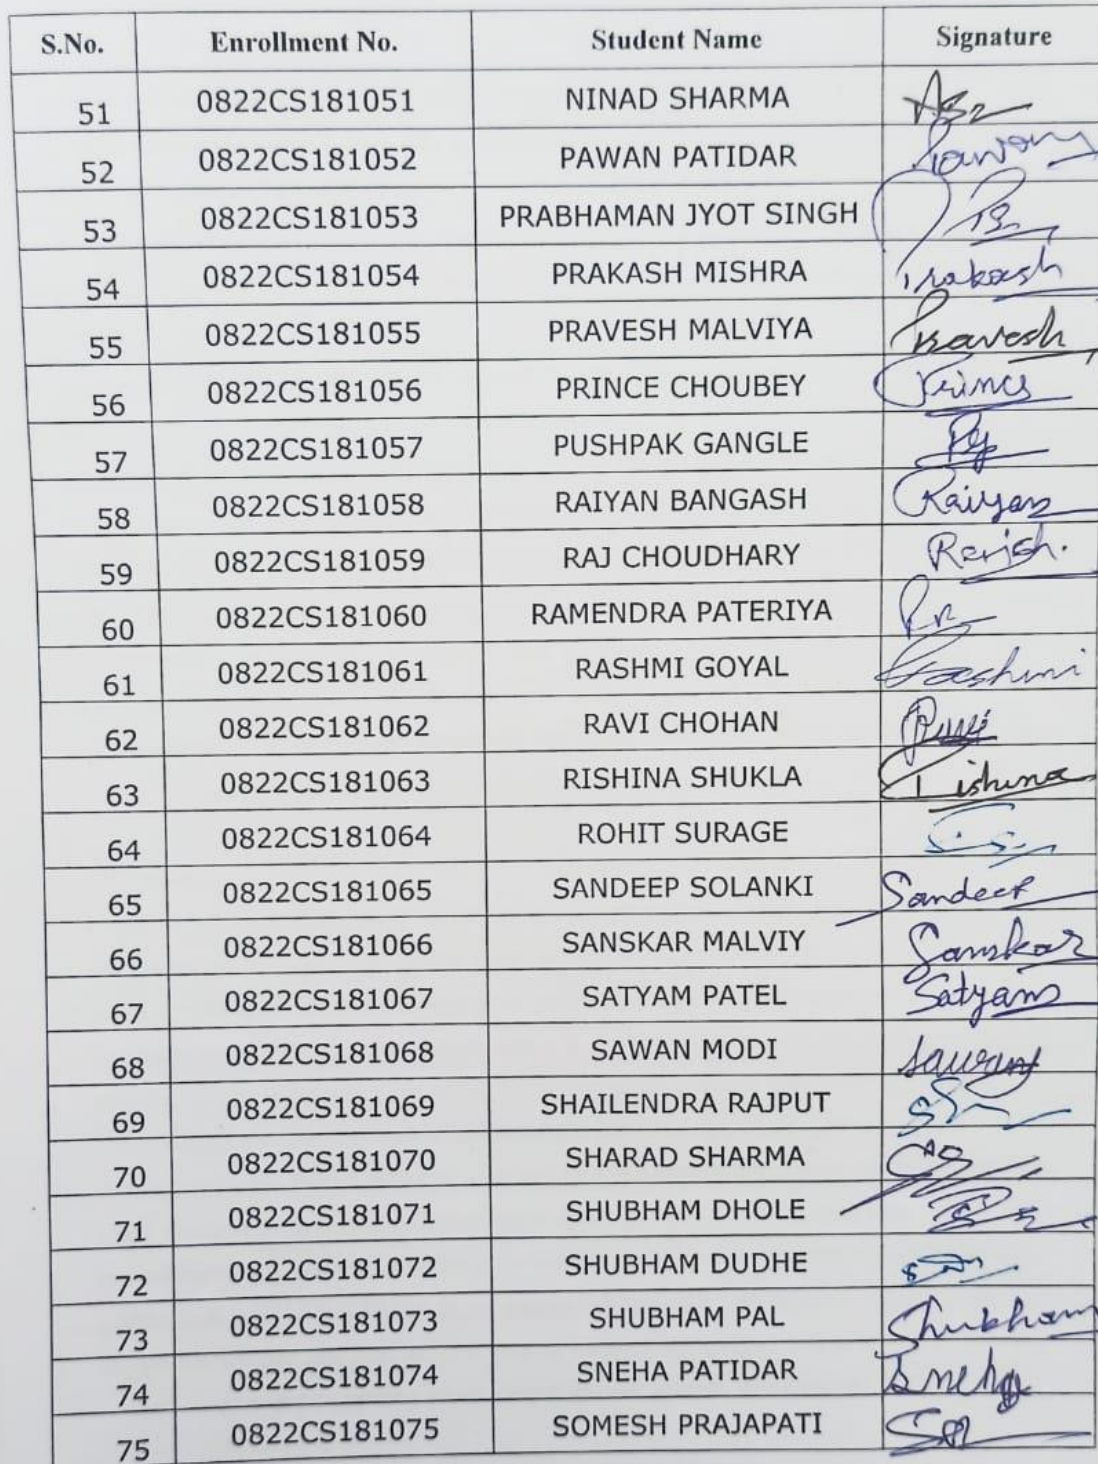 S.No. Enrollment No. Student Name Signature
51 0822CS181051 NINAD SHARMA
52 0822CS181052 PAWAN PATIDAR Pawan
53 0822CS181053 PRABHAMAN JYOT SINGH
54 0822CS181054 PRAKASH MISHRA Prakash
55 0822CS181055 PRAVESH MALVIYA Pravesh
56 0822CS181056 PRINCE CHOUBEY Prince
57 0822CS181057 PUSHPAK GANGLE
58 0822CS181058 RAIYAN BANGASH Raiyan
59 0822CS181059 RAJ CHOUDHARY
60 0822CS181060 RAMENDRA PATERIYA
61 0822CS181061 RASHMI GOYAL Rashmi
62 0822CS181062 RAVI CHOHAN Ravi
63 0822CS181063 RISHINA SHUKLA Rishina
64 0822CS181064 ROHIT SURAGE
65 0822CS181065 SANDEEP SOLANKI Sandeep
66 0822CS181066 SANSKAR MALVIY Sanskar
67 0822CS181067 SATYAM PATEL Satyam
68 0822CS181068 SAWAN MODI Sawan
69 0822CS181069 SHAILENDRA RAJPUT
70 0822CS181070 SHARAD SHARMA
71 0822CS181071 SHUBHAM DHOLE
72 0822CS181072 SHUBHAM DUDHE
73 0822CS181073 SHUBHAM PAL Shubham
74 0822CS181074 SNEHA PATIDAR Sneha
75 0822CS181075 SOMESH PRAJAPATI